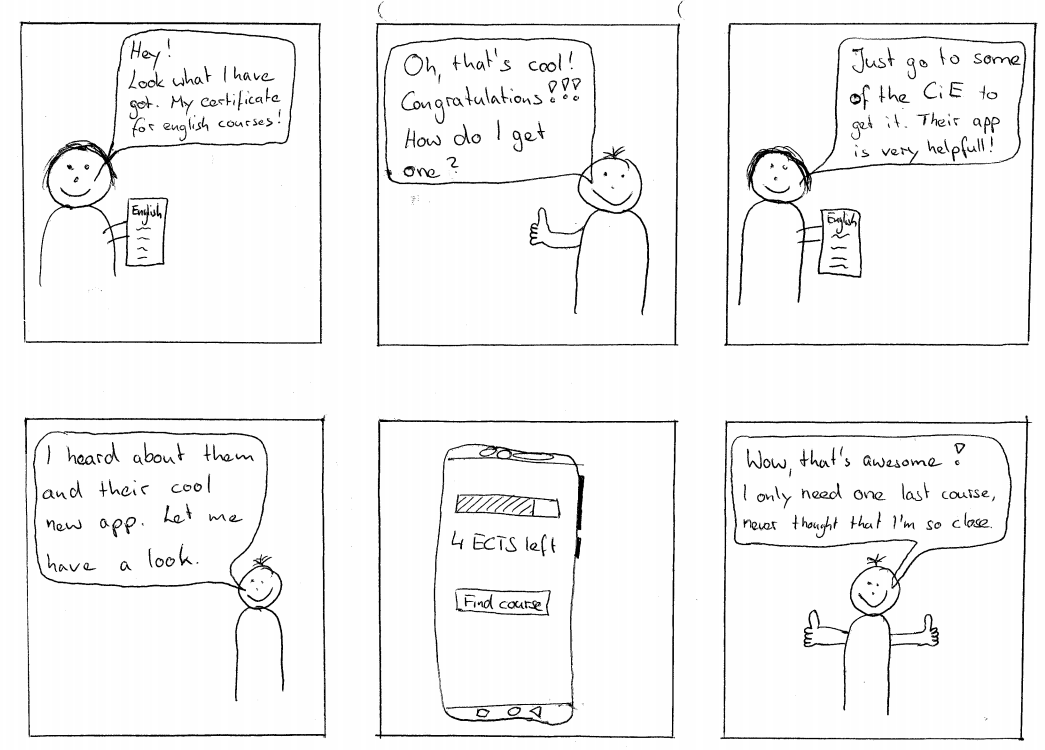 Hey!
Look what I have
got. My certificate
for english courses!
English
Oh, that's cool!
Congratulations!!!
How do I get
one?
Just go to some
of the CiE to
get it. Their app
is very helpfull!
English
I heard about them
and their cool
new app. Let me
have a look.
4 ECTS left
Find course
Wow, that's awesome!
I only need one last course,
never thought that I'm so close.